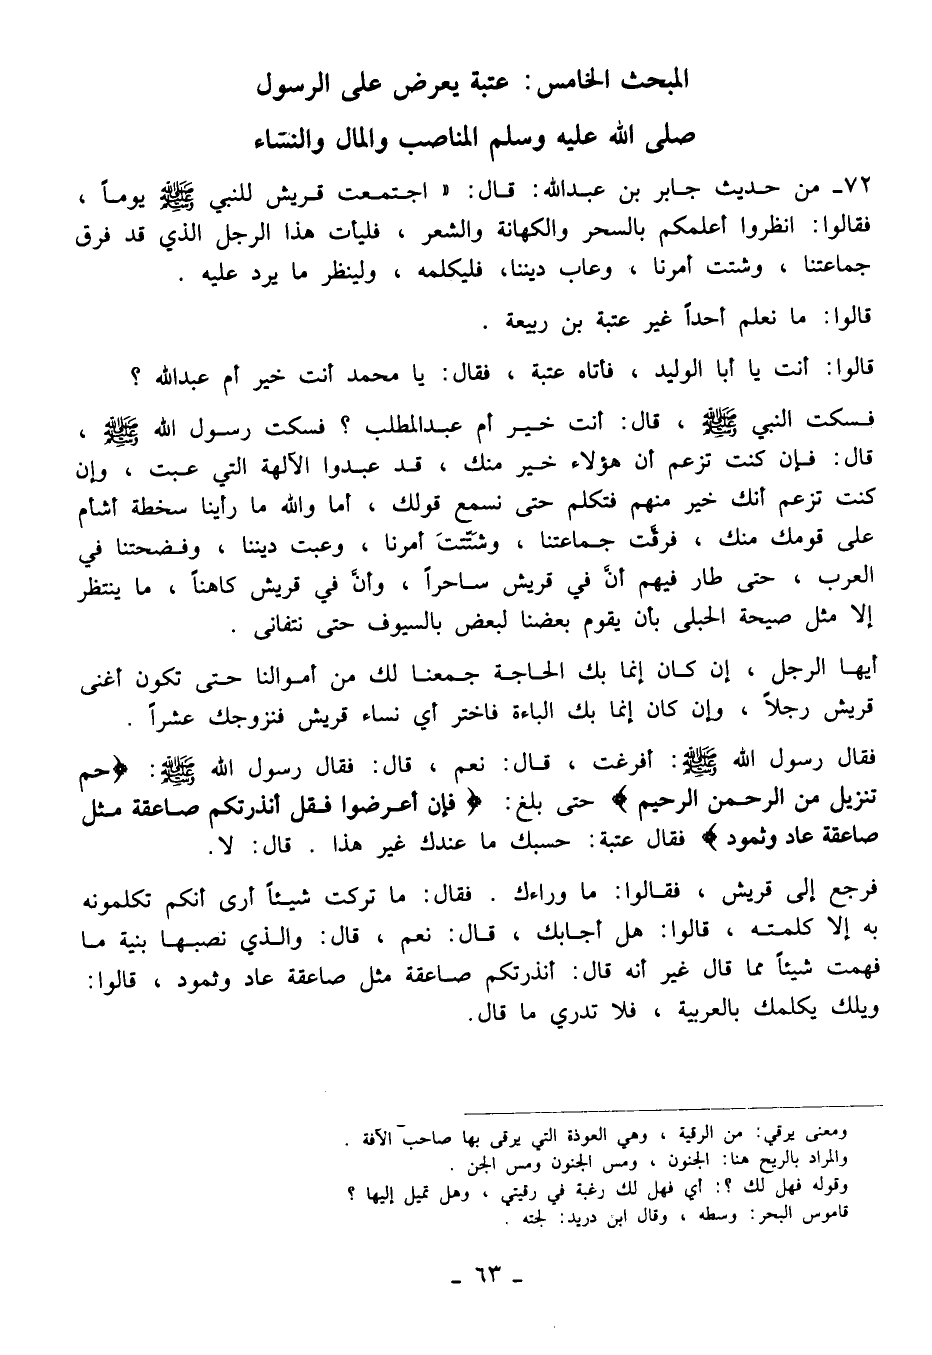 المبحث الخامس : عتبة يعرض على الرسول
صلى الله عليه وسلم المناصب والمال والنساء
٧٢ـ من حديث جابر بن عبدالله : قال : « اجتمعت قريش للنبي ﷺ يوماً ،
فقالوا : انظروا أعلمكم بالسحر والكهانة والشعر ، فليأت هذا الرجل الذي قد فرق
جماعتنا ، وشتت أمرنا ، وعاب ديننا، فليكلمه ، ولينظر ما يرد عليه .
قالوا : ما نعلم أحداً غير عتبة بن ربيعة .
قالوا : أنت يا أبا الوليد ، فأتاه عتبة ، فقال : يا محمد أنت خير أم عبدالله ؟
فسكت النبي ﷺ ، قال : أنت خير أم عبدالمطلب ؟ فسكت رسول الله ﷺ ،
قال : فإن كنت تزعم أن هؤلاء خير منك ، قد عبدوا الألهة التي عبت ، وإن
كنت تزعم أنك خير منهم فتكلم حتى نسمع قولك ، أما والله ما رأينا سخطة أشأم
على قومك منك ، فرقَّت جماعتنا ، وشتَّتَ أمرنا ، وعبت ديننا ، وفضحتنا في
العرب ، حتى طار فيهم أنَّ في قريش ساحراً ، وأنَّ في قريش كاهناً ، ما ينتظر
إلا مثل صيحة الحبلى بأن يقوم بعضنا لبعض بالسيوف حتى نتفانى .
أيها الرجل ، إن كان إنما بك الحاجة جمعنا لك من أموالنا حتى تكون أغنى
قريش رجلاً ، وإن كان إنما بك الباءة فاختر أي نساء قريش فنزوجك عشراً .
فقال رسول الله ﷺ : أفرغت ، قال : نعم ، قال : فقال رسول الله ﷺ : ﴿حم
تنزيل من الرحمن الرحيم ﴾ حتى بلغ : ﴿ فإن أعرضوا فقل أنذرتكم صاعقة مثل
صاعقة عاد وثمود ﴾ فقال عتبة : حسبك ما عندك غير هذا . قال : لا.
فرجع إلى قريش ، فقالوا : ما وراءك . فقال : ما تركت شيئاً أرى أنكم تكلمونه
به إلا كلمته ، قالوا : هل أجابك ، قال : نعم ، قال : والذي نصبها بنية ما
فهمت شيئاً مما قال غير أنه قال : أنذرتكم صاعقة مثل صاعقة عاد وثمود ، قالوا :
ويلك يكلمك بالعربية ، فلا تدري ما قال.
ومعنى يرقي : من الرقية ، وهي العوذة التي يرقى بها صاحب الآفة .
والمراد بالريح هنا : الجنون ، ومس الجنون ومس الجن .
وقوله فهل لك ؟ : أي فهل لك رغبة في رقيتي ، وهل تميل إليها ؟
قاموس البحر : وسطه ، وقال ابن دريد : لجته .
ـ ٦٣ ـ